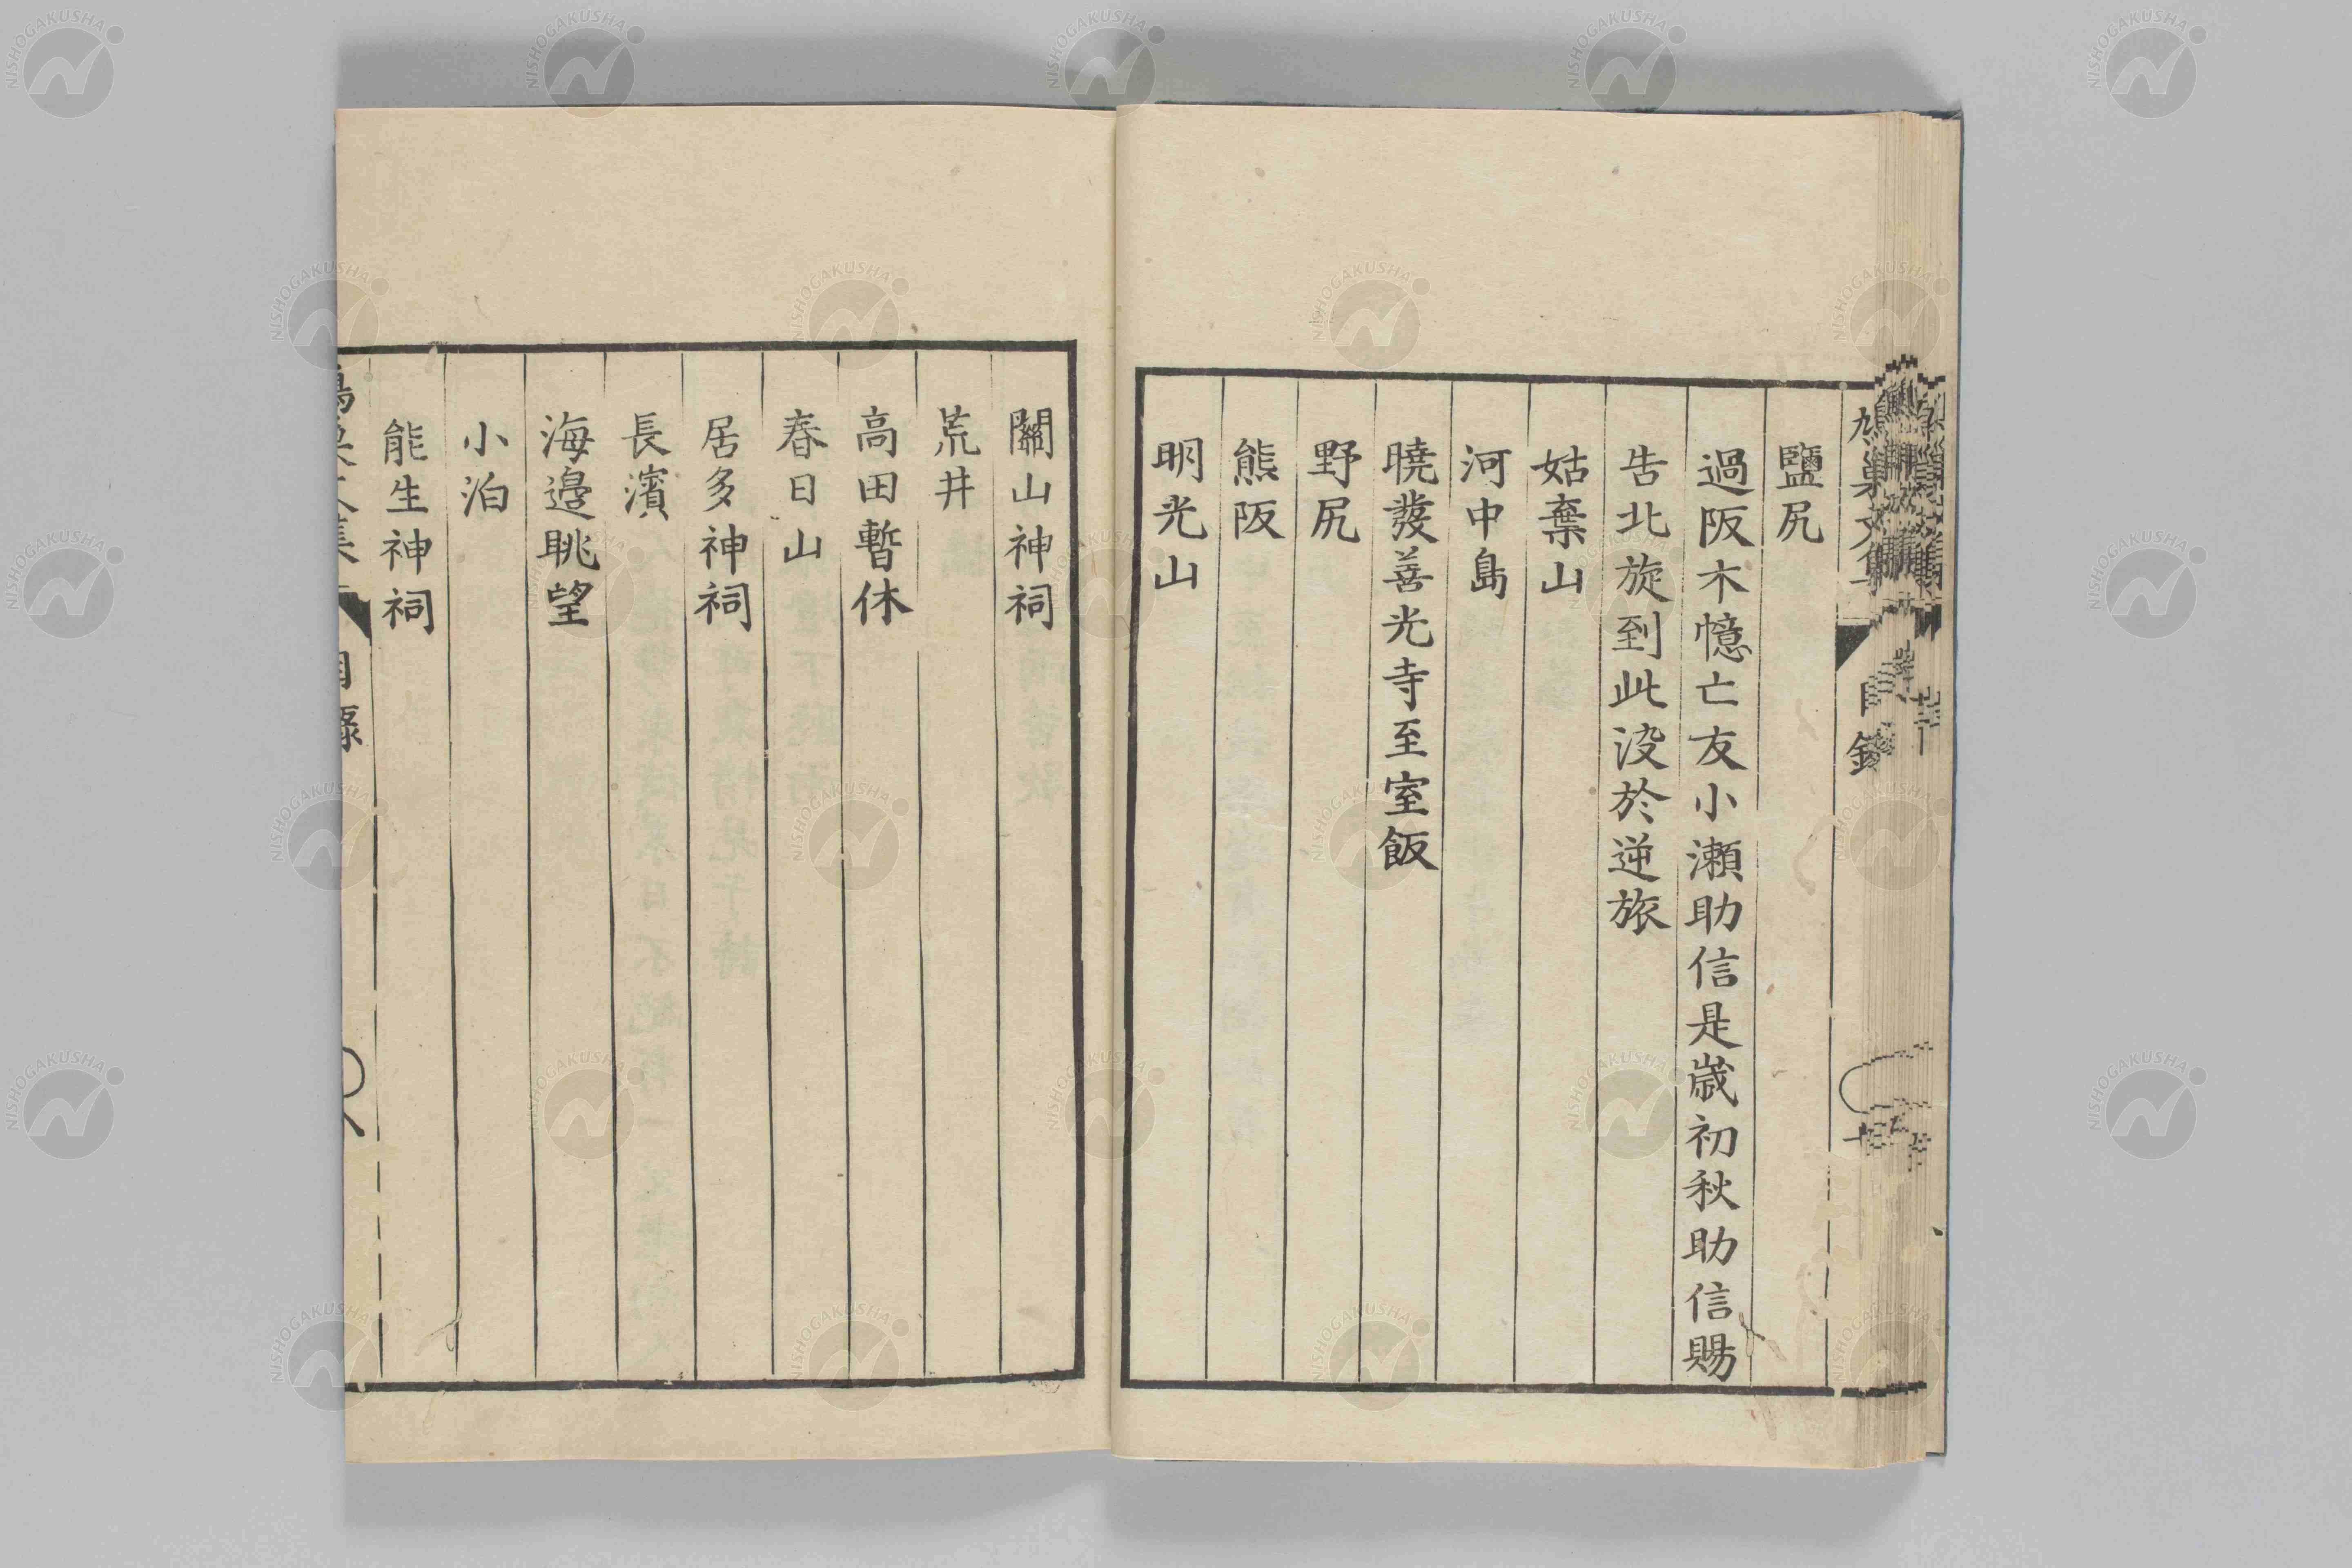 鹽尻
過阪木憶亡友小瀬助信是歲初秋助信賜
告北旋到此没於逆旅
姑棄山
河中島
曉發善光寺至室飯
野尻
熊阪
明光山
關山神祠
荒井
高田暫休
春日山
居多神祠
長濱
海邊眺望
小泊
能生神祠
目錄
NISHOGAKUSHA